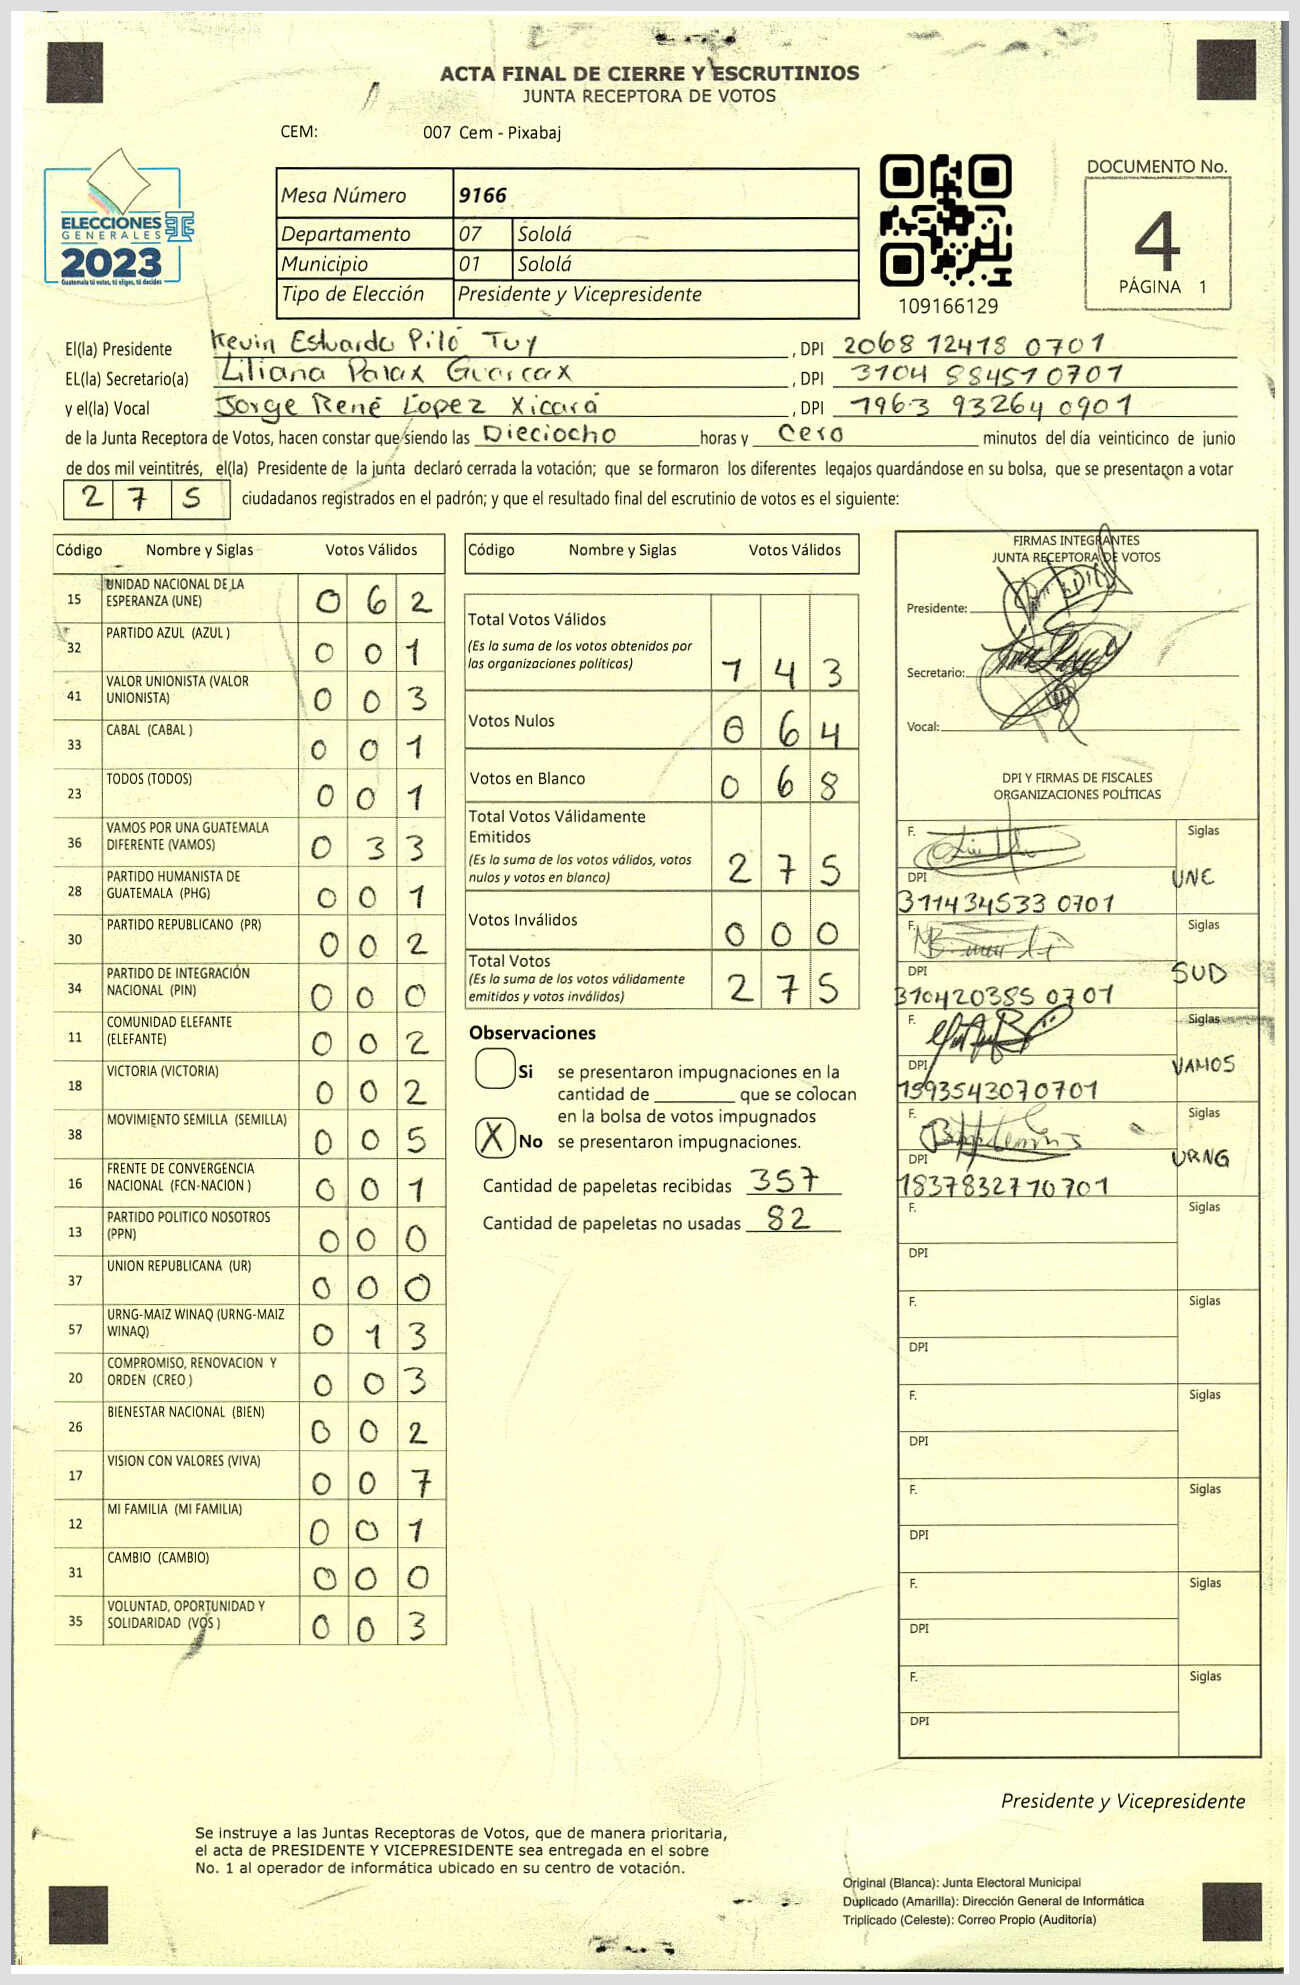 ACTA FINAL DE CIERRE Y ESCRUTINIOS
JUNTA RECEPTORA DE VOTOS
CEM: 007 Cem - Pixabaj
ELECCIONES
GENERALES
2023
Guatemala tú votas, tú eliges, tú decides
Mesa Número 9166
Departamento 07 Sololá
Municipio 01 Sololá
Tipo de Elección Presidente y Vicepresidente
109166129
DOCUMENTO No.
4
PÁGINA 1
El(la) Presidente Kevin Estuardo Piló Tuy , DPI 2068 12418 0701
EL(la) Secretario(a) Liliana Palax Guarcax , DPI 3104 88451 0701
y el(la) Vocal Jorge René López Xicará , DPI 1963 93264 0901
de la Junta Receptora de Votos, hacen constar que siendo las Dieciocho horas y Cero minutos del día veinticinco de junio
de dos mil veintitrés, el(la) Presidente de la junta declaró cerrada la votación; que se formaron los diferentes legajos guardándose en su bolsa, que se presentaron a votar
275 ciudadanos registrados en el padrón; y que el resultado final del escrutinio de votos es el siguiente:
Código Nombre y Siglas Votos Válidos
15 UNIDAD NACIONAL DE LA ESPERANZA (UNE) 062
32 PARTIDO AZUL (AZUL ) 001
41 VALOR UNIONISTA (VALOR UNIONISTA) 003
33 CABAL (CABAL ) 001
23 TODOS (TODOS) 001
36 VAMOS POR UNA GUATEMALA DIFERENTE (VAMOS) 033
28 PARTIDO HUMANISTA DE GUATEMALA (PHG) 001
30 PARTIDO REPUBLICANO (PR) 002
34 PARTIDO DE INTEGRACIÓN NACIONAL (PIN) 000
11 COMUNIDAD ELEFANTE (ELEFANTE) 002
18 VICTORIA (VICTORIA) 002
38 MOVIMIENTO SEMILLA (SEMILLA) 005
16 FRENTE DE CONVERGENCIA NACIONAL (FCN-NACION ) 001
13 PARTIDO POLITICO NOSOTROS (PPN) 000
37 UNION REPUBLICANA (UR) 000
57 URNG-MAIZ WINAQ (URNG-MAIZ WINAQ) 013
20 COMPROMISO, RENOVACION Y ORDEN (CREO ) 003
26 BIENESTAR NACIONAL (BIEN) 002
17 VISION CON VALORES (VIVA) 007
12 MI FAMILIA (MI FAMILIA) 001
31 CAMBIO (CAMBIO) 000
35 VOLUNTAD, OPORTUNIDAD Y SOLIDARIDAD (VOS ) 003
Código Nombre y Siglas Votos Válidos
Total Votos Válidos 143
(Es la suma de los votos obtenidos por
las organizaciones políticas)
Votos Nulos 064
Votos en Blanco 068
Total Votos Válidamente
Emitidos 275
(Es la suma de los votos válidos, votos
nulos y votos en blanco)
Votos Inválidos 000
Total Votos 275
(Es la suma de los votos válidamente
emitidos y votos inválidos)
Observaciones
Si se presentaron impugnaciones en la
cantidad de ________ que se colocan
en la bolsa de votos impugnados
X No se presentaron impugnaciones.
Cantidad de papeletas recibidas 357
Cantidad de papeletas no usadas 82
FIRMAS INTEGRANTES
JUNTA RECEPTORA DE VOTOS
Presidente:
Secretario:
Vocal:
DPI Y FIRMAS DE FISCALES
ORGANIZACIONES POLÍTICAS
F. Siglas
DPI UNE
311434533 0701
F. Siglas
DPI SUD
310420385 0701
F. Siglas
DPI VAMOS
1593543070701
F. Siglas
DPI URNG
1837832770701
F. Siglas
DPI
F. Siglas
DPI
F. Siglas
DPI
F. Siglas
DPI
F. Siglas
DPI
F. Siglas
DPI
Presidente y Vicepresidente
Se instruye a las Juntas Receptoras de Votos, que de manera prioritaria,
el acta de PRESIDENTE Y VICEPRESIDENTE sea entregada en el sobre
No. 1 al operador de informática ubicado en su centro de votación.
Original (Blanca): Junta Electoral Municipal
Duplicado (Amarilla): Dirección General de Informática
Triplicado (Celeste): Correo Propio (Auditoría)